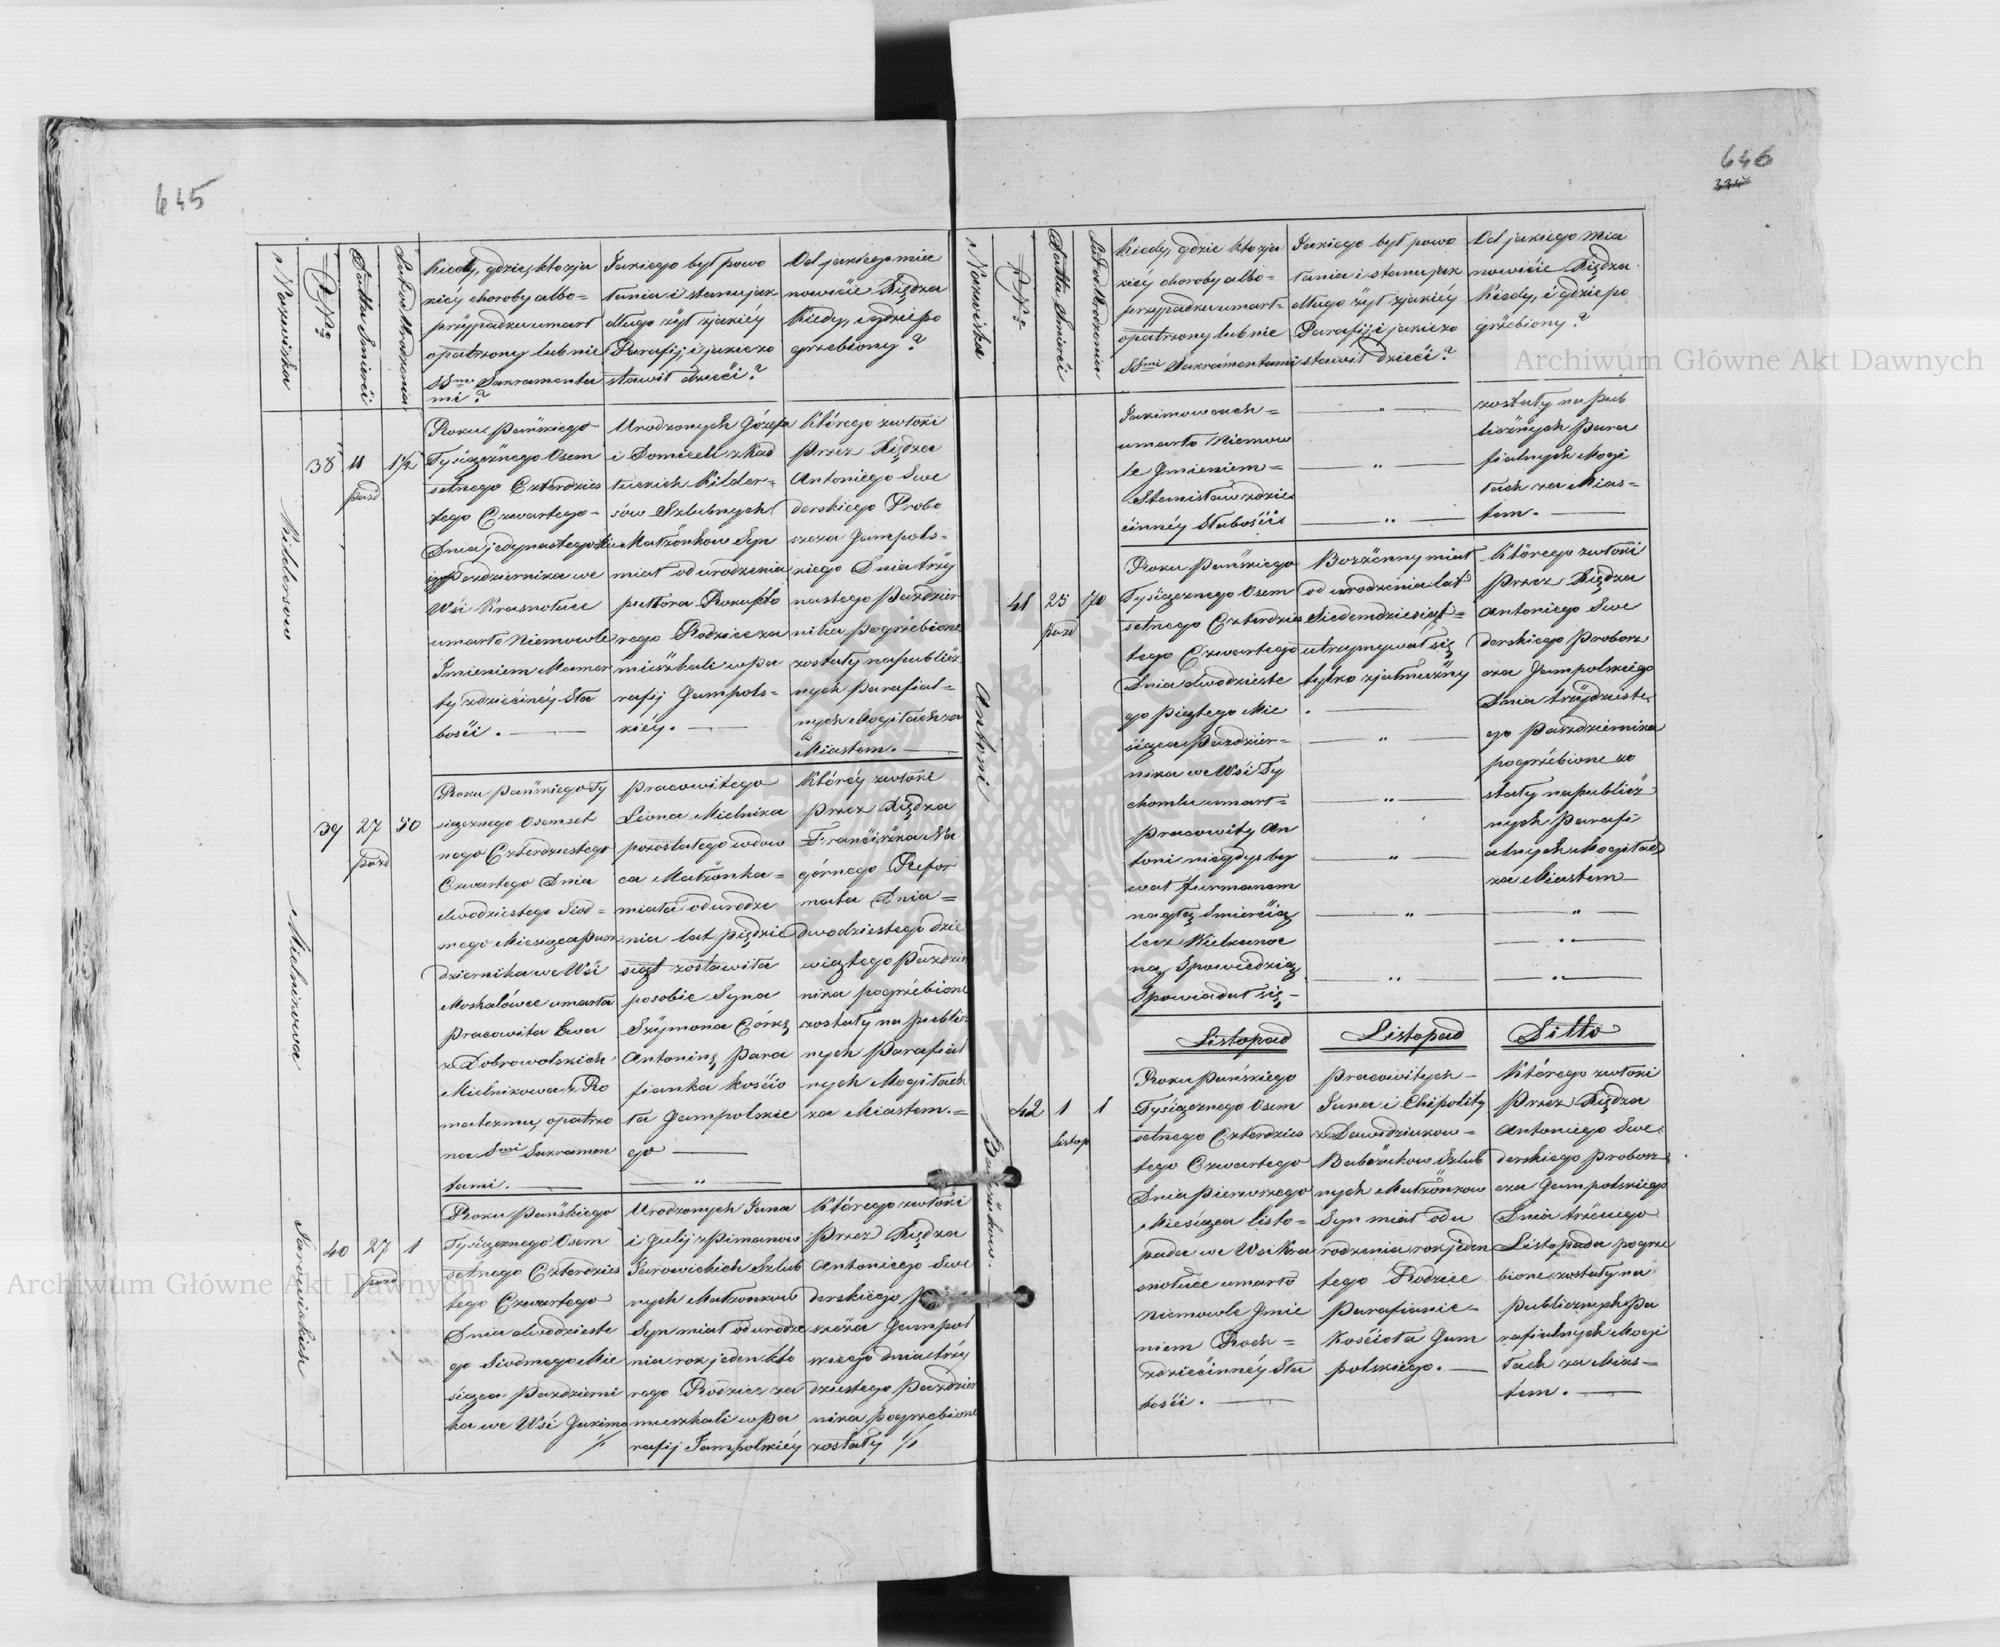 645
Nazwiska
Datta Smierći
Lat od Urodzenia
Kiedy, gdzie, kto zja
kiéy choroby albo-
przypadku umart
opatrzony lub nie
SSmi Sakramenta
mi?
Jakiego był powo
łania i stanu jak
długo żył z jakiéy
Parafij i jakie zo
stawił dzieći?
Od jakiego mia
nowićie Xiędza
Kiedy, i gdzie po
grzebiony?
38
11
pazd
1½
Roku Pańskiego
Tysiącznego Osem
setnego Czterdzies
tego Czwartego-
Dnia jedynastego
Pazdziernika we
Wśi Krasnołuce
umarło Niemowle
Imieniem Mamer
ty zdziećinéy Sła
bośći.
Urodzonych Józefa
i Domiceli z Rad
Kilder-
sów Szlubnych
Małżonkow Syn
miał od urodzenia
pułtora Roku kto
rego Rodzice za
mieszkali w pa
rafij Jampols-
kiéy.
Którego zwłoki
Przez Xiędza
Antoniego Swe
derskiego Probo
szcza Jampols-
kiego Dnia trzy
nastego Pazdzier
nika pogrzebione
zostały na publicz
nych Parafial-
nych Mogiłach za
Miastem.
39
27
pazd
50
Mielnikowa
Roku Pańskiego Ty
siącznego Osemset
nego Czterdziestego
Czwartego Dnia
dwodziestego Siod-
mego Miesiąca Paz
dziernika we Wśi
Moskalówce umarła
Pracowita Ewa
z Dobrowolskich
Mielnikowa z Ro
matyzmu, opatrzo
na Smi Sakramen
tami.
Pracowitego
Leona Mielnika
pozostałego wdow
ca Małżonka-
miała od urodze
nia lat pięédzie
siąt zostawiła
po sobie Syna
Szymona Córkę
Antoninę Para
fianka Kośćio
ła Jampolskie
go
Któréy zwłoki
Przez Xiędza
Franćiszka Na
górnego Refor
mata Dnia-
dwodziestego dzie
wiątego Pazdzier
nika pogrzebione
zostały na public
nych Parafial
nych Mogiłach
za Miastem.=
40
27
pazd
1
Roku Pańskiego
Tysiącznego Osem
setnego Czterdzies
tego Czwartego
Dnia dwodzieste
go Siodmego Mie
śiąca Pazdzierni
ka we Wśi Jakimo
Urodzonych Jana
i Julij z Pimanow
Jarowickich Szlub
nych Małżonkow
Syn miał od urodze
nia rok jeden kto
rego Rodzice za
mieszkali w pa
rafij Jampolskiéy
Którego zwłoki
Przez Xiędza
Antoniego Swe
derskiego
szcza Jampol
skiego dnia trzy
dziestego Pazdzier
nika pogrzebione
zostały
646
334
Nazwiska
Datta Smierći
Lat od Urodzenia
Kiedy, gdzie kto zja
kiéy choroby albo-
przypadku umart-
opatrzony lub nie
SSmi Sakramentami
Jakiego był powo
łania i stanu jak
długo żył z jakiéy
Parafij i jakie zo
stawił dzieći?
Od jakiego mia
nowićie Xiędza
Kiedy, i gdzie po
grzebiony?
Jakimowcach=
umarło Niemow
le Jmieniem=
Stanisław zdzie
ćinnéy Słabośći
zostały na pub
licznych para
fialnych Mogi
łach za Mias-
tem.
41
25
pazd
70
Antoni
Roku Pańskiego
Tysiącznego Osem
setnego Czterdzies
tego Czwartego
Dnia dwodzieste
go piątego Mie
śiąca Pazdzier-
nika we Wśi Ty
chomlu umart=
Pracowity An
toni niegdys by
wał furmanem
nagłą Smierćią
lecz Wielkanoc
ną Spowiedzią
Spowiadał się-
Bozżenny miał
od urodzenia lat
Siedemdziesiąt=
utrzymywał się
tylko z jałmużny
Którego zwłoki
Przez Xiędza
Antoniego Swe
derskiego Probosz
cza Jampolskiego
Dnia trzydzieste
go Pazdziernika
pogrzebione zo
stały na publicz
nych Parafi
alnych Mogiłach
za Miastem
Listopad
Listopad
Ditto
42
1
Listop
1
Roku Pańskiego
Tysiącznego Osem
setnego Czterdzies
tego Czwartego
Dnia Pierwszego
Miesiąca Listo=
pada we Wsi Kra
snołuce umarło
Niemowle Jmie
niem Roch=
zdziećinnéy Sła
bośći.
Pracowitych-
Jana i Chipolity
z Dawidziukow=
Babczukow Szlub
nych Małżonkow
Syn miał od u
rodzenia rok jeden
tego Rodzice
Parafianie-
Kośćioła Jam
polskiego.
Którego zwłoki
Przez Xiędza
Antoniego Swe
derskiego Probosz
cza Jampolskiego
Dnia trzéciego
Listopada pogrze
bione zostały na
Publicznych Pa
rafialnych Mogi
łach za Mias=
tem.
Archiwum Główne Akt Dawnych
Archiwum Główne Akt Dawnych